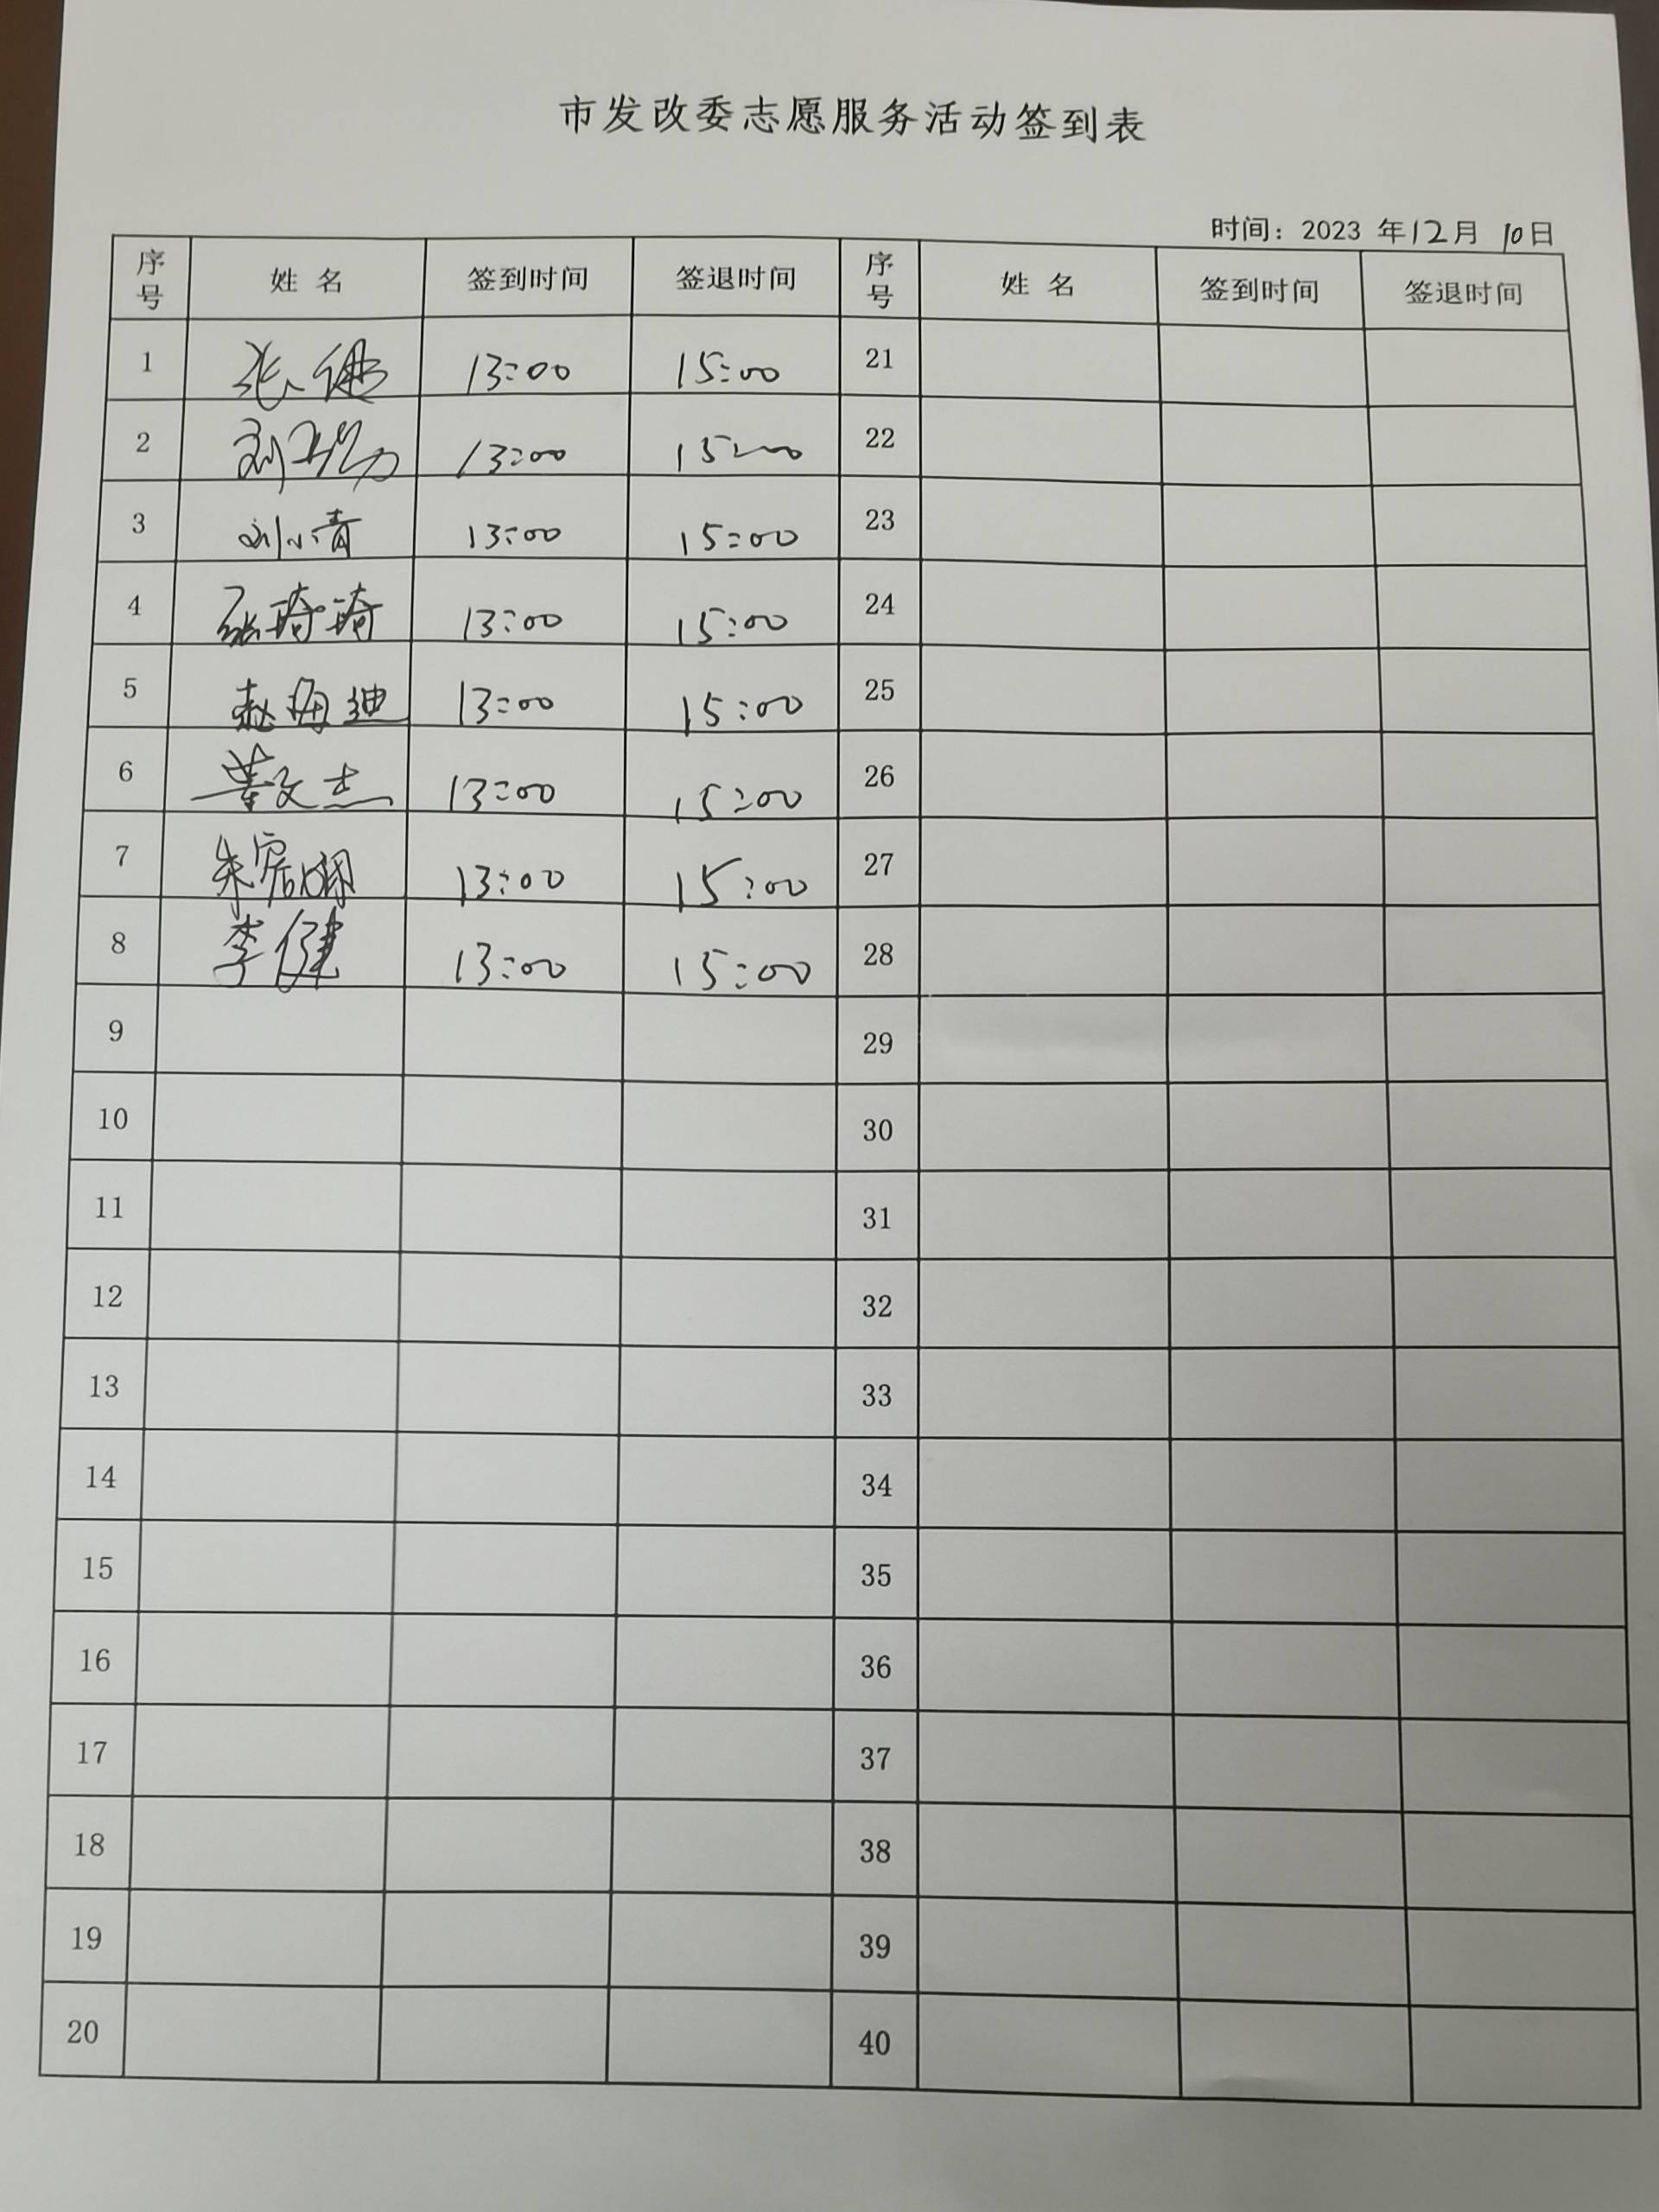 市发改委志愿服务活动签到表
时间：2023 年12月 10日
序号 姓 名 签到时间 签退时间 序号 姓 名 签到时间 签退时间
1 张 13:00 15:00 21
2 刘 13:00 15:00 22
3 刘小青 13:00 15:00 23
4 张琦琦 13:00 15:00 24
5 赵海迪 13:00 15:00 25
6 董文杰 13:00 15:00 26
7 朱 13:00 15:00 27
8 李健 13:00 15:00 28
9 29
10 30
11 31
12 32
13 33
14 34
15 35
16 36
17 37
18 38
19 39
20 40